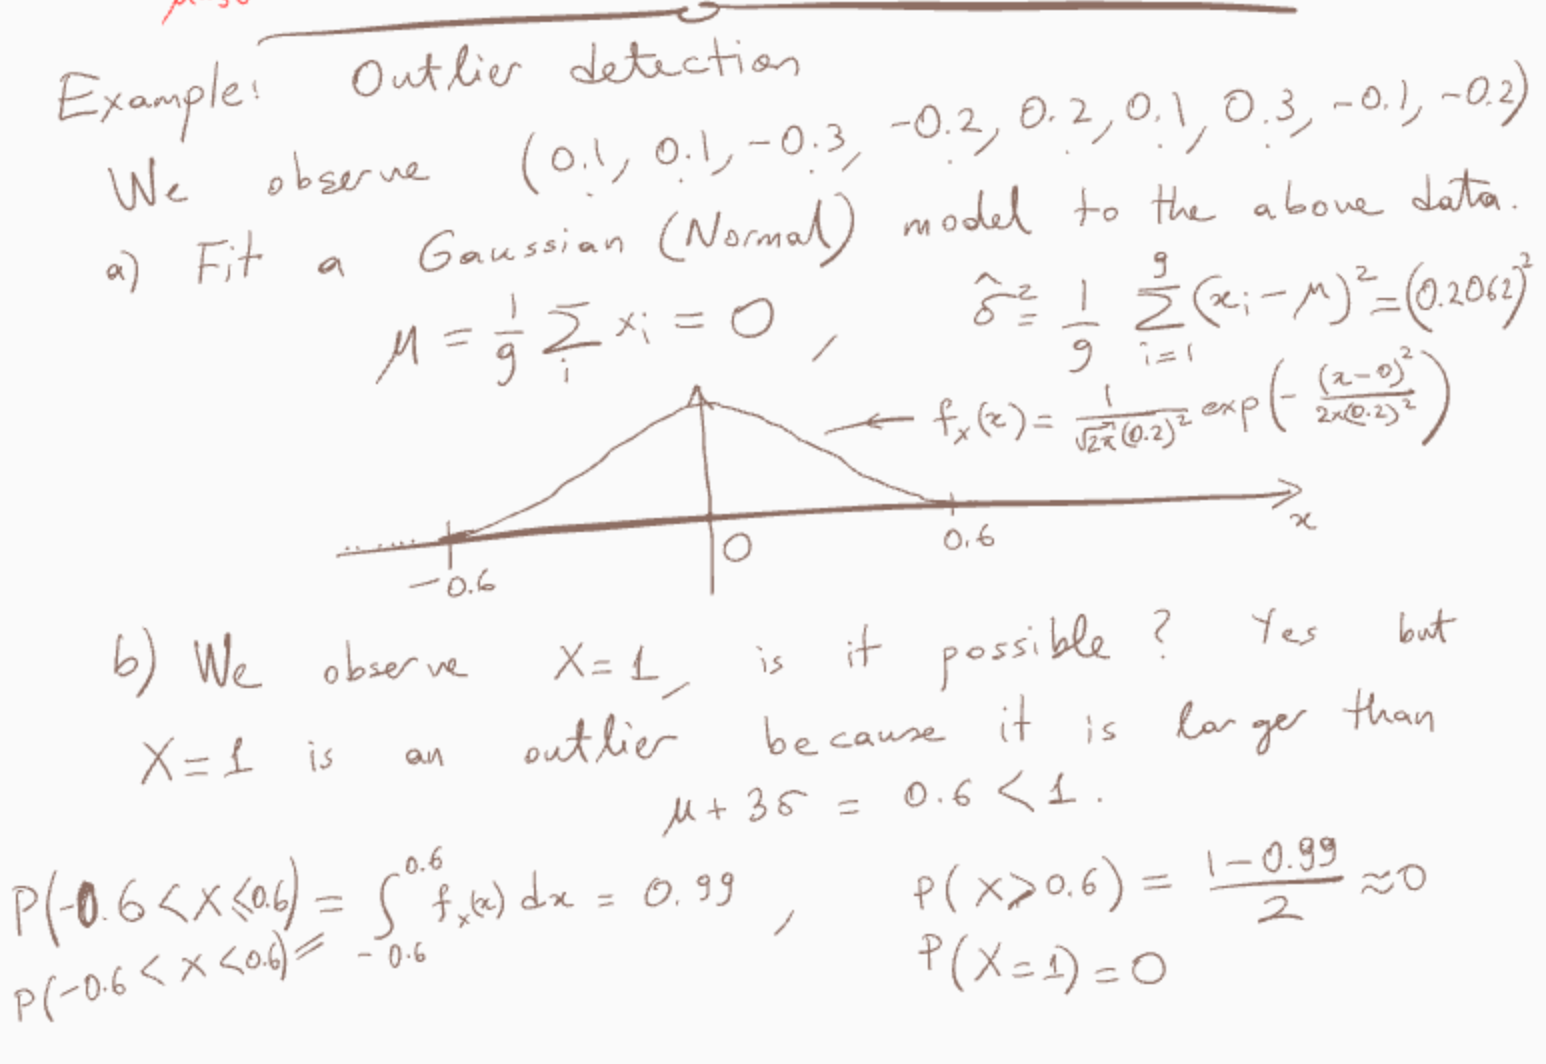 Example: Outlier detection
We observe (0.1, 0.1, -0.3, -0.2, 0.2, 0.1, 0.3, -0.1, -0.2)
a) Fit a Gaussian (Normal) model to the above data.
μ = 1/9 Σ_i x_i = 0, σ̂² = 1/9 Σ_{i=1}^{9} (x_i - μ)² = (0.2062)²
f_x(x) = 1/√2π(0.2)² exp(- (x-0)²/2π(0.2)²)
-0.6 0 0.6 x
b) We observe X=1, is it possible? Yes but
X=1 is an outlier because it is larger than
μ + 3σ = 0.6 < 1.
P(-0.6 < X ≤ 0.6) = ∫_{-0.6}^{0.6} f_x(x) dx = 0.99, P(X > 0.6) = (1 - 0.99)/2 ≈ 0
P(-0.6 < X < 0.6) = P(X=1) = 0